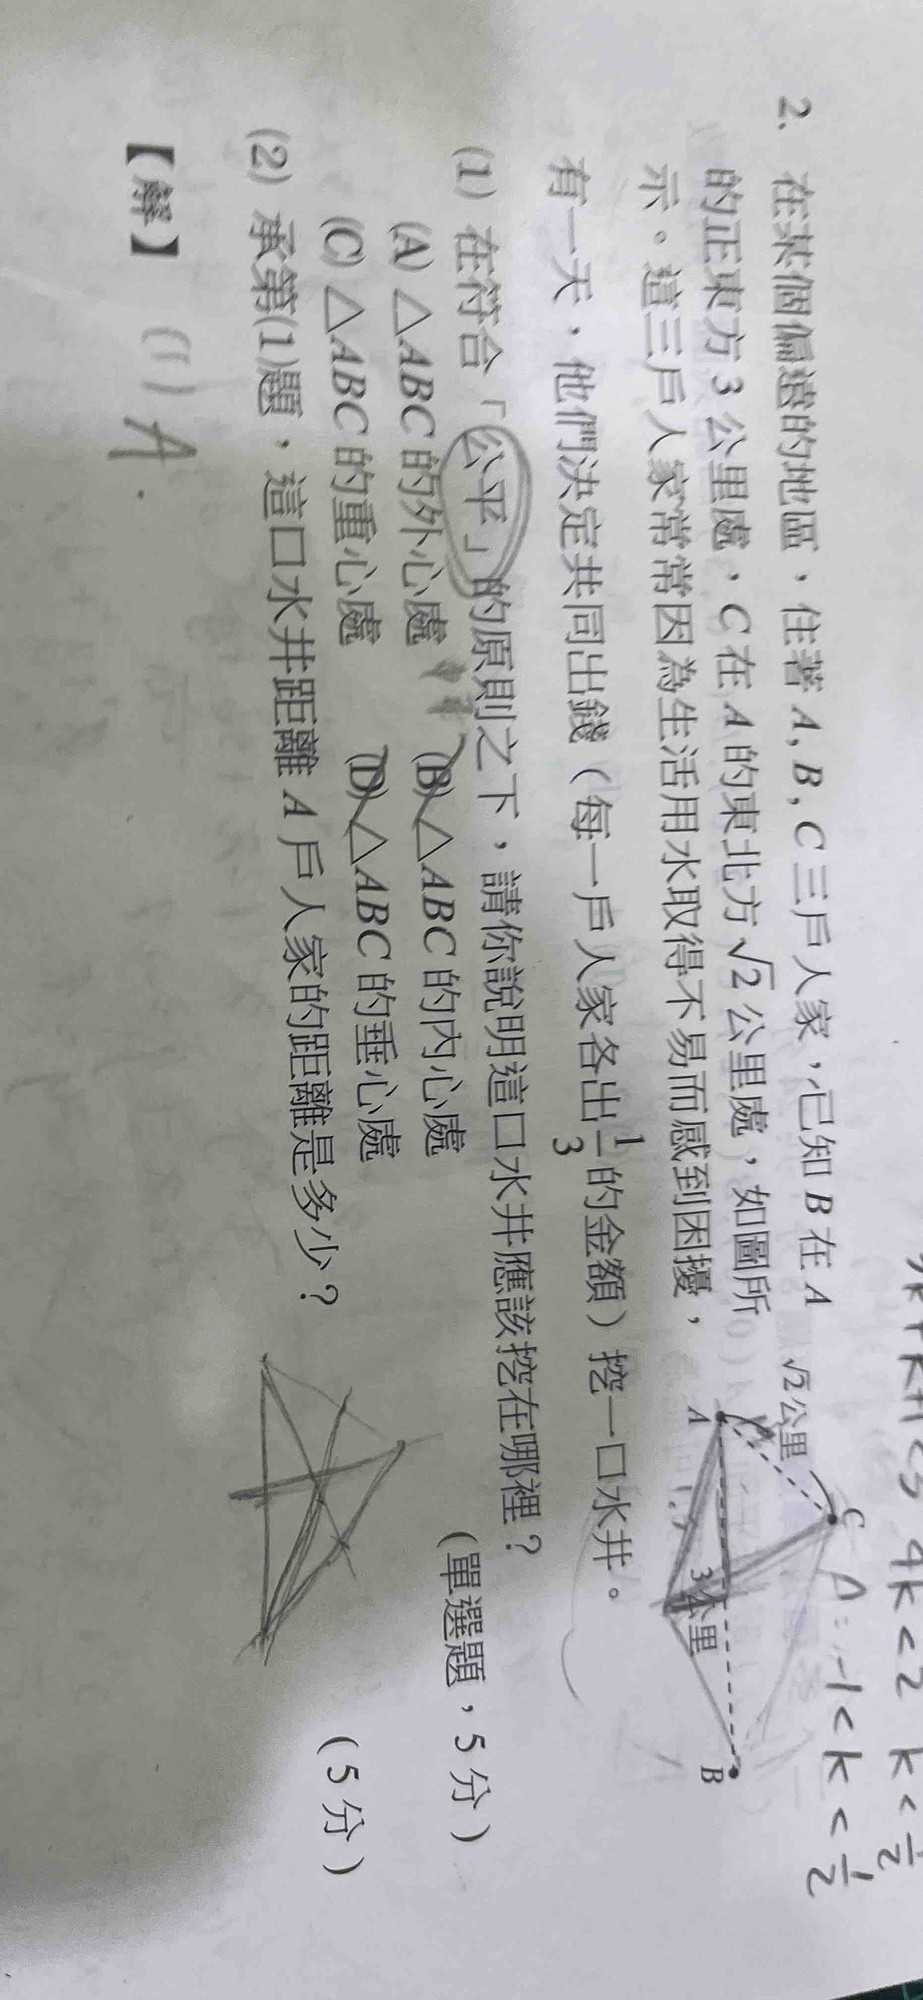 4k<2 k<1/2
A:-1<k<1/2
2. 在某個偏遠的地區，住著 A, B, C 三戶人家，已知 B 在 A
的正東方 3 公里處，C 在 A 的東北方 √2 公里處，如圖所
示。這三戶人家常常因為生活用水取得不易而感到困擾，
有一天，他們決定共同出錢（每一戶人家各出 1/3 的金額）挖一口水井。
C
√2公里
A
3公里
B
1.5
(1) 在符合「公平」的原則之下，請你說明這口水井應該挖在哪裡？
（單選題，5 分）
(A) △ABC 的外心處 (B) △ABC 的內心處
(C) △ABC 的重心處 (D) △ABC 的垂心處
(2) 承第(1)題，這口水井距離 A 戶人家的距離是多少？ （5 分）
【解】 (1) A.